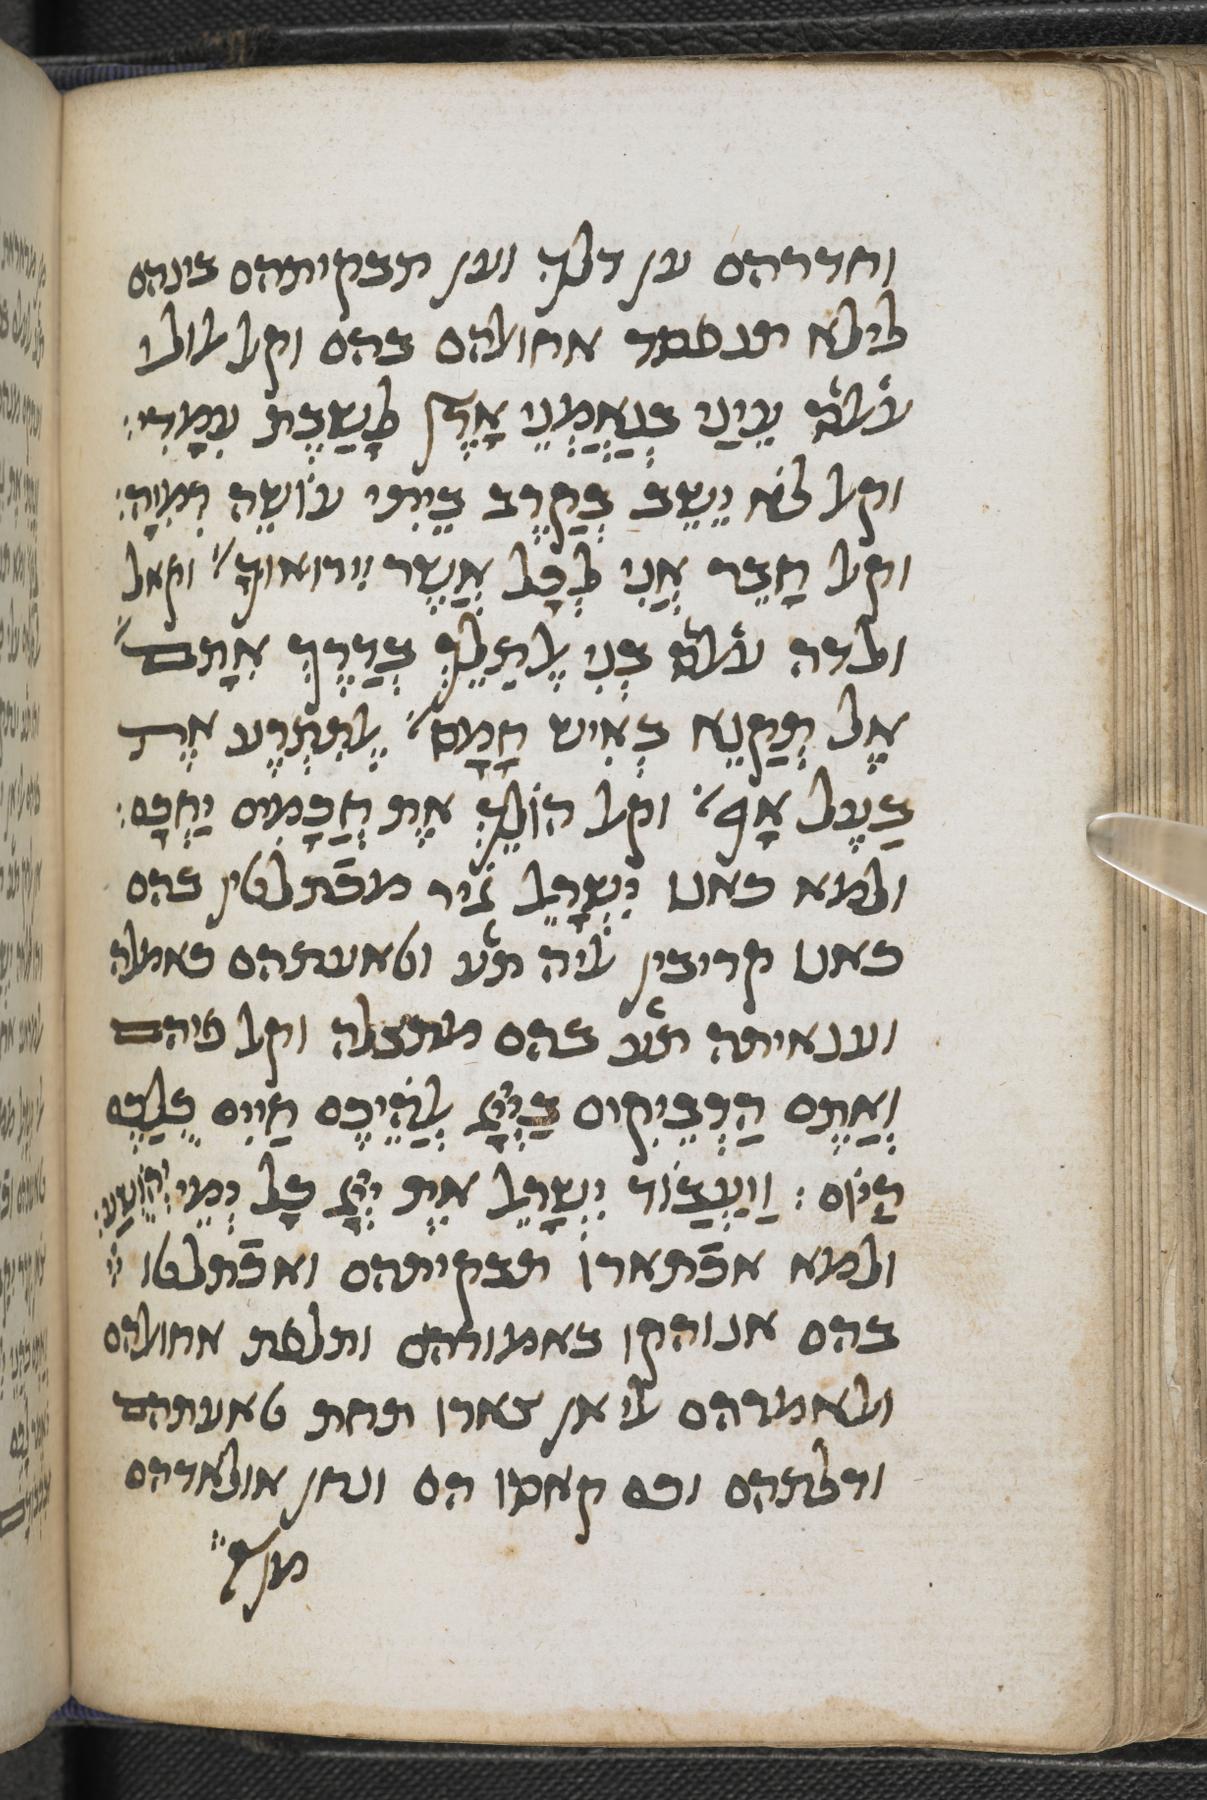 וחדרהם ען דלך וען תבקיתהם בינהם
לילא תנפסד אחואלהם בהם וקאל אלולי
ע֗ל֗ס֗ עֵינַי בְנֶאֱמְנֵי אָרֶץ לָשֶׁבֶת עִמָדִי׃
וקאל לֹא יֵשֵב בְקֶרֶב בֵיתִי עוֹשֵה רְמִיָה׃
וקאל חָבֵר אֲנִי לְכָל אֲשֶר יִירואוךָ׳׳ וקאל
ולדה ע֗ל֗ס֗ בְנִי אַל תֵלֵךְ בְדֶרֶךְ אִתָם׳׳
אַל תְקַנֵא בְאִיש חָמָס׳׳ אַל תִתְרַע אֶת
בַעַל אָף׳׳ וקאל הוֹלֵךְ אֶת חֲכָמִים יַחְכָם׃
ולמא כאנו יִשְרָאֵל גיר מכ֗תלטין בהם
כאנו קריבין אליה תע֗ וטאעתהם כאמלה
וענאיתה תע֗ בהם מתצלה וקאל פיהם
וְאַתֶם הַדְבֵיקִים בַייָ אֱלָהֵיכֶם חַיִים כֻלְכֶם
הַיוֹם׃ וַיַעֲבוֹד יִשְרָאֵל אֶת יְיָ כָל יְמֵי יְהוֹשֻעַ׃
ולמא אכ֗תארו תבקיתהם ואכ֗תלטו
בהם אנוהקו באמורהם ותלפת אחואלהם
ולאמרהם אלי אן צארו תחת טאעתהם
ודלתהם וכם קאסו הם ונחן אולאדהם
מן אל